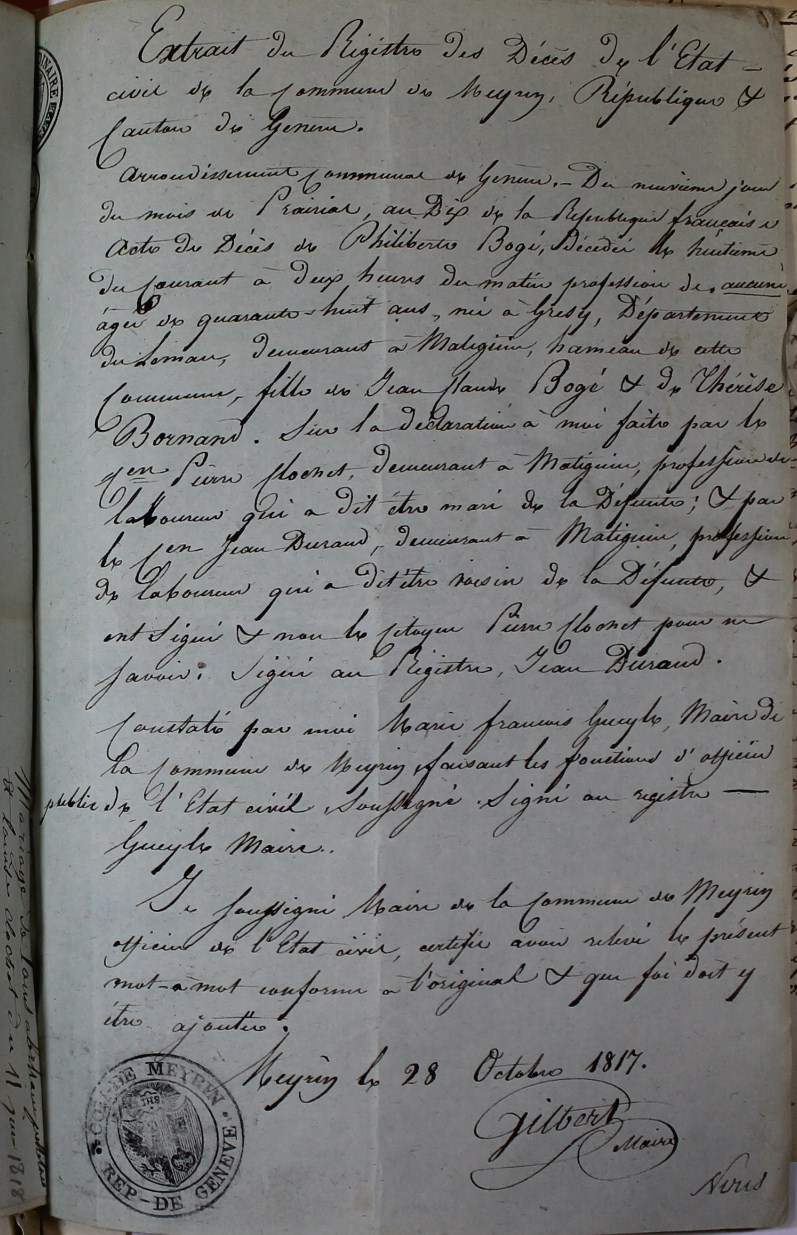 Extrait du Régistre des Décès de l'Etat-
civil de la Commune de Meyrin, République &
Canton de Geneve.
Arrondissement Communal de Geneve. - Du neuvième jour
du mois de Prairial, an Dix de la République française
Acte de Décès de Philiberte Bogé, Décédée le huitième
du Courant à deux heures du matin profession de aucune
âgée de quarante-huit ans, née à Gresy, Département
du Leman, demeurant à Matignin, hameau de cette
Commune, fille de Jean Claude Bogé & de Thérèse
Bornand. Sur la déclaration à moi faite par le
Cen Pierre Clochet, demeurant à Matignin, profession de
laboureur qui a dit être mari de la Défunte; & par
le Cen Jean Durand, demeurant à Matignin, profession
de laboureur qui a dit être voisin de la Défunte, &
ont Signé & non le Citoyen Pierre Clochet pour ne
savoir. Signé au Régistre, Jean Durand.
Constaté par moi Marie francois Maire de
la Commune de Meyrin, faisant les fonctions d'officier
public de l'Etat civil, Soussigné. Signé au registre —
Maire.
Je soussigné Maire de la Commune de Meyrin
officier de l'Etat civil, certifie avoir relevé le présent
mot-à-mot conforme à l'original & que foi doit y
être ajoutée.
Meyrin le 28 Octobre 1817.
Gilbert
Maire
COM. DE MEYRIN
REP. DE GENEVE
Mariage de Louis
& Louise Clochet du 11 1818